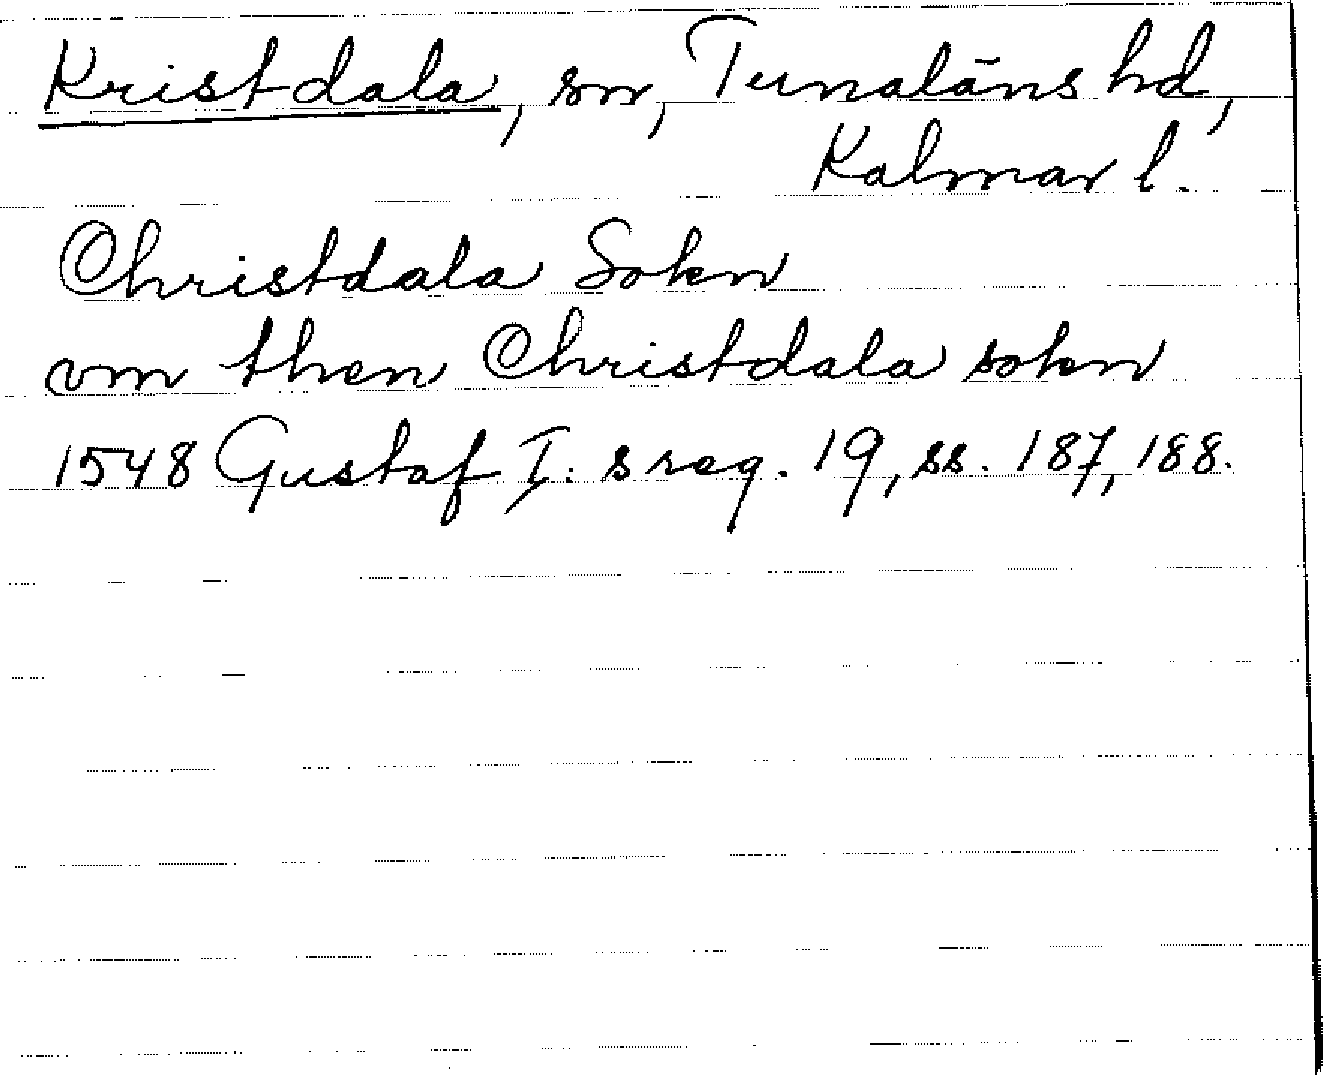 Kristdala, sn, Tunaläns hd,
Kalmar l.
Christdala Sokn
vm then Christdala sokn
1548 Gustaf I: s reg. 19, ss. 187, 188.